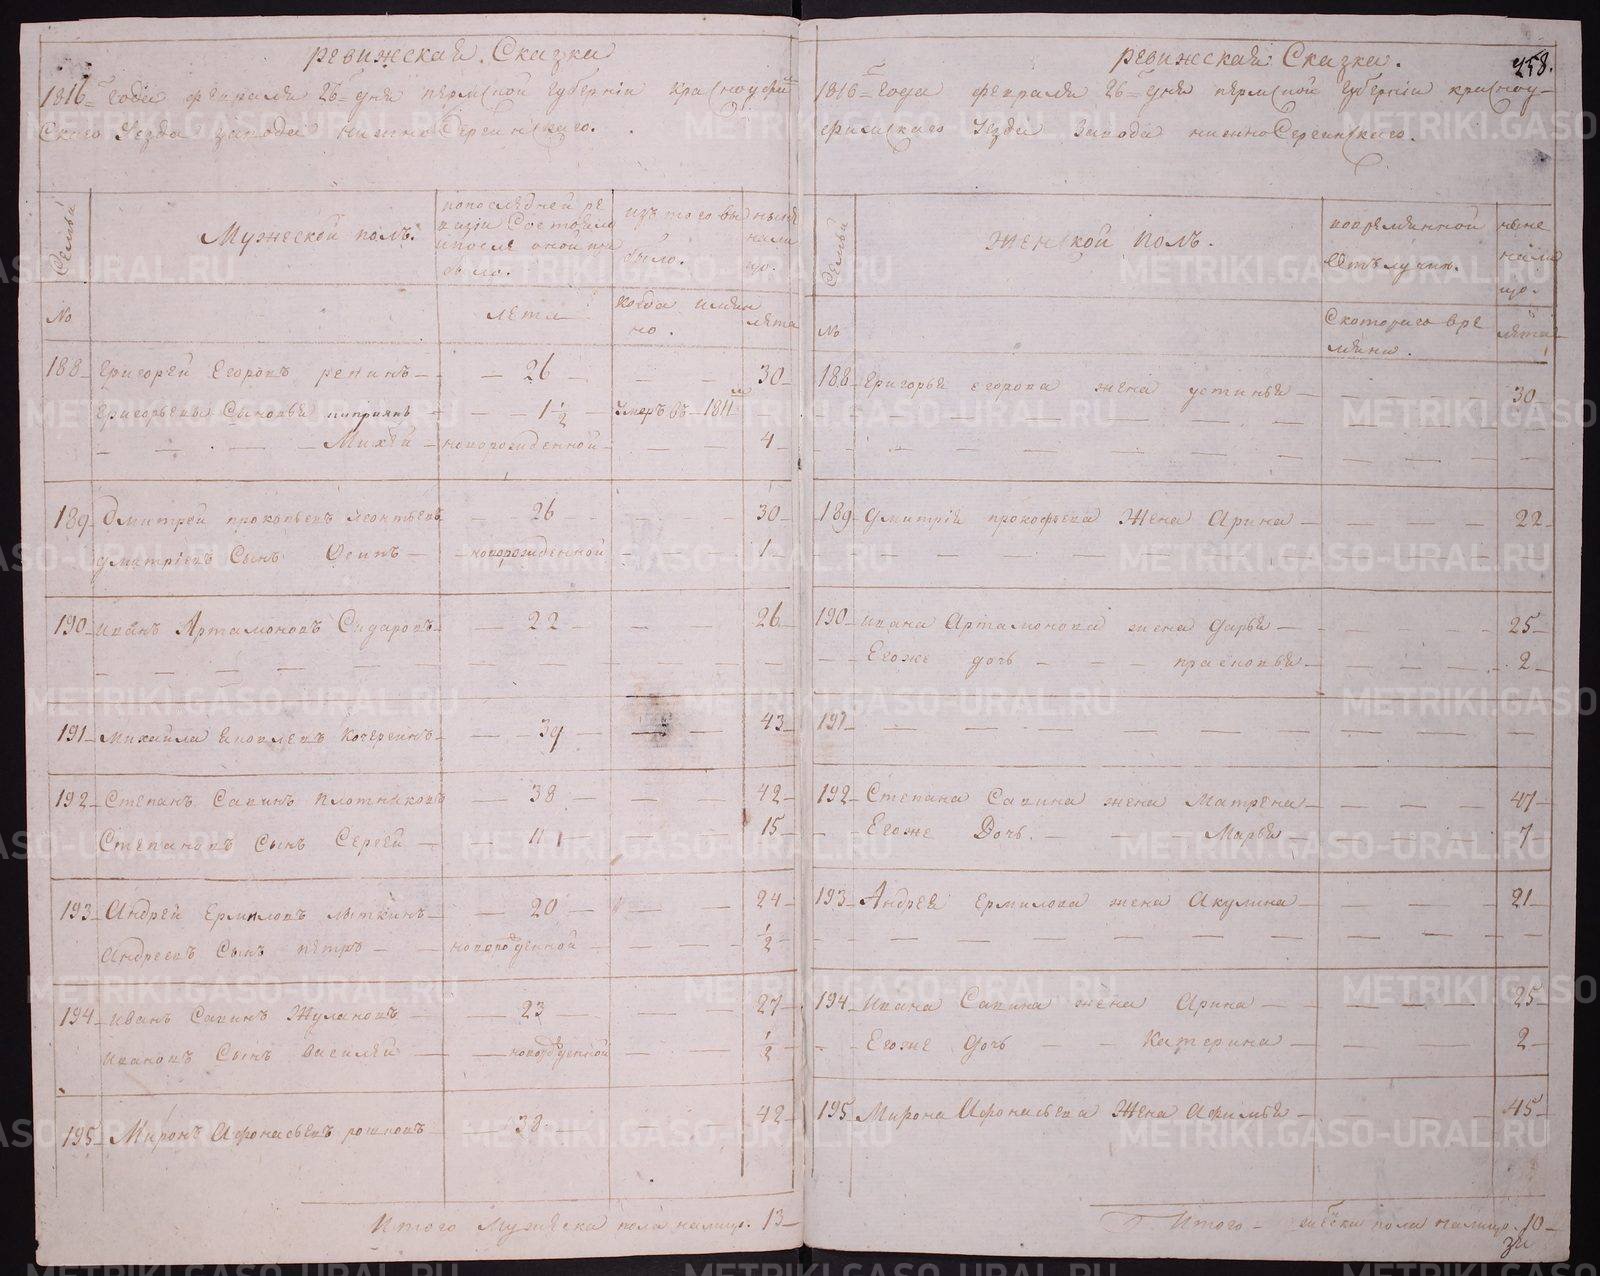 Ревижская Сказка
1816 Года февраля 26 дня пермской Губернiи Красноуфим
Скаго Уезда завода нижно Сергинскаго.
Семьи
Мужеской полъ.
попоследней ре
визiи Состояло
ипосле оной при
было.
изъ того вы
было.
ныне
нали
цо.
No
лета
когда имян
но.
лета
188 Григорей Егоровъ репинъ 26 30
Григорьевы Сыновья киприянъ 1 1/2 Умеръ въ 1811 м
Михей новорожденной 4
189 Дмитрей прокопьевъ леонтьевъ 26 30
дмитрiевъ Сынъ Осипъ новорожденной 1
190 иванъ Артамоновъ Сидаровъ 22 26
191 михайла яковлевъ Кочергинъ 39 43
192 Степанъ Савинъ плотниковъ 38 42
Степановъ Сынъ Сергей 11 15
193 Андрей Ермиловъ лѣткинъ 20 24
Андреевъ Сынъ петръ новорожденной 1/2
194 иванъ Савинъ Жулановъ 23 27
ивановъ Сынъ василей новорожденной 1/2
195 Миронъ Афонасьевъ рошковъ 38 42
Итого Мужеска пола налицо. 13
Ревижская Сказка.
258.
1816 Года февраля 26 дня пермской Губернiи красноу-
фимскаго Уезда Завода нижно Сергинскаго.
Семьи
женской полъ.
вовременной
Отълучке.
ныне
нали
цо.
No
Скотораго вре
мяни.
лета
188 Григорья егорова жена устинья 30
189 дмитрiя прокофьева Жена Арина 22
190 ивана Артамонова жена дарья 25
Егоже дочь прасковья 2
191
192 Степана Савина жена Матрена 47
Егоже Дочь. Марья 7
193 Андрея Ермилова жена Акулина 21
194 ивана Савина жена Арина 25
Егоже дочь Катерина 2
195 Мирона Афонасьева Жена Афимья 45
Итого женска пола налицо. 10
METRIKI.GASO-URAL.RU